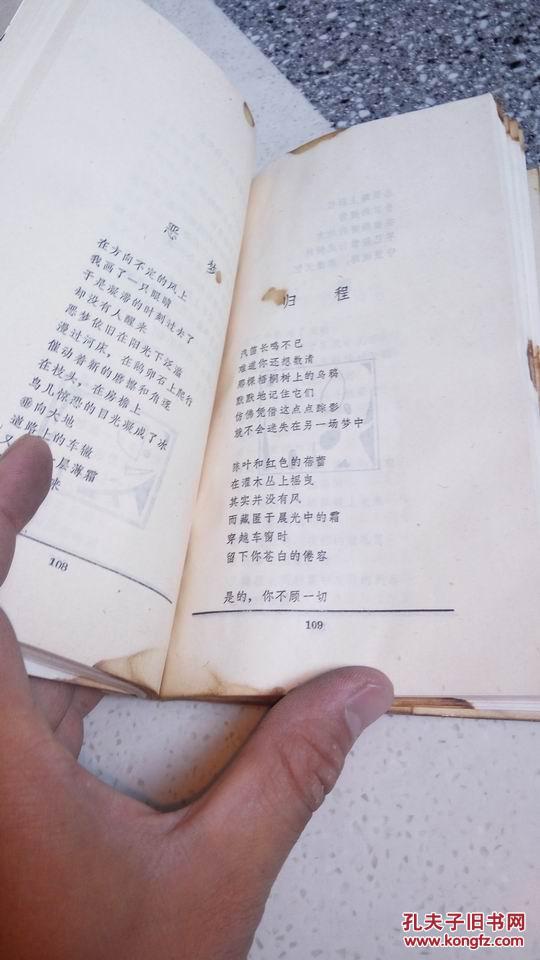 恶 梦
在方向不定的风上
我画了一只眼睛
于是凝滞的时刻过去了
却没有人醒来
恶梦依旧在阳光下泛滥
漫过河床，在鹅卵石上爬行
催动着新的磨擦和角逐
在枝头，在房檐上
鸟儿惊恐的目光凝成了冰
垂向大地
道路上的车辙
又
层薄霜
来
108
归 程
汽笛长鸣不已
难道你还想数清
那棵梧桐树上的乌鸦
默默地记住它们
仿佛凭借这点点踪影
就不会迷失在另一场梦中
陈叶和红色的蓓蕾
在灌木丛上摇曳
其实并没有风
而藏匿于晨光中的霜
穿越车窗时
留下你苍白的倦容
是的，你不顾一切
109
孔夫子旧书网
www.kongfz.com